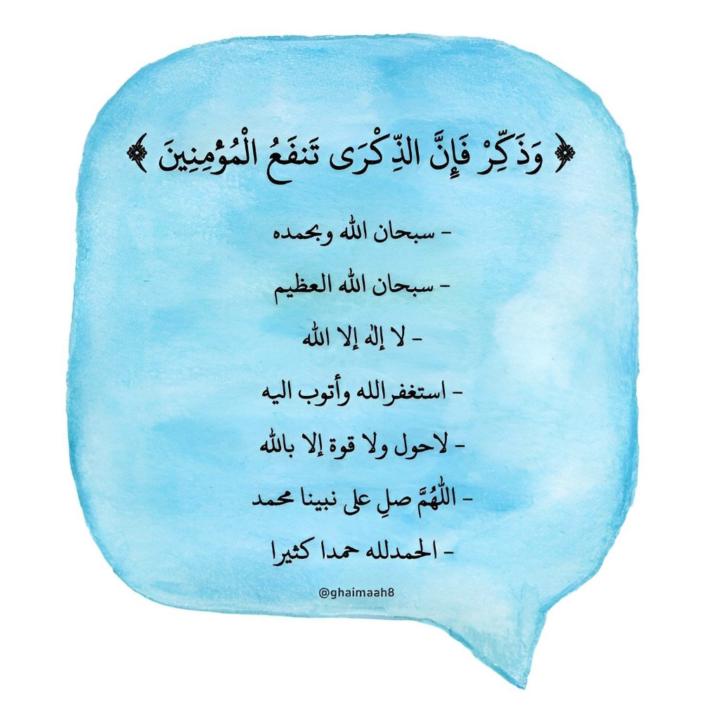 ﴿ وَذَكِّرْ فَإِنَّ الذِّكْرَى تَنفَعُ الْمُؤْمِنِينَ ﴾
- سبحان الله وبحمده
- سبحان الله العظيم
- لا إله إلا الله
- استغفرالله وأتوب اليه
- لاحول ولا قوة إلا بالله
- اللَّهُمَّ صلِ على نبينا محمد
- الحمدلله حمدا كثيرا
@ghaimaah8